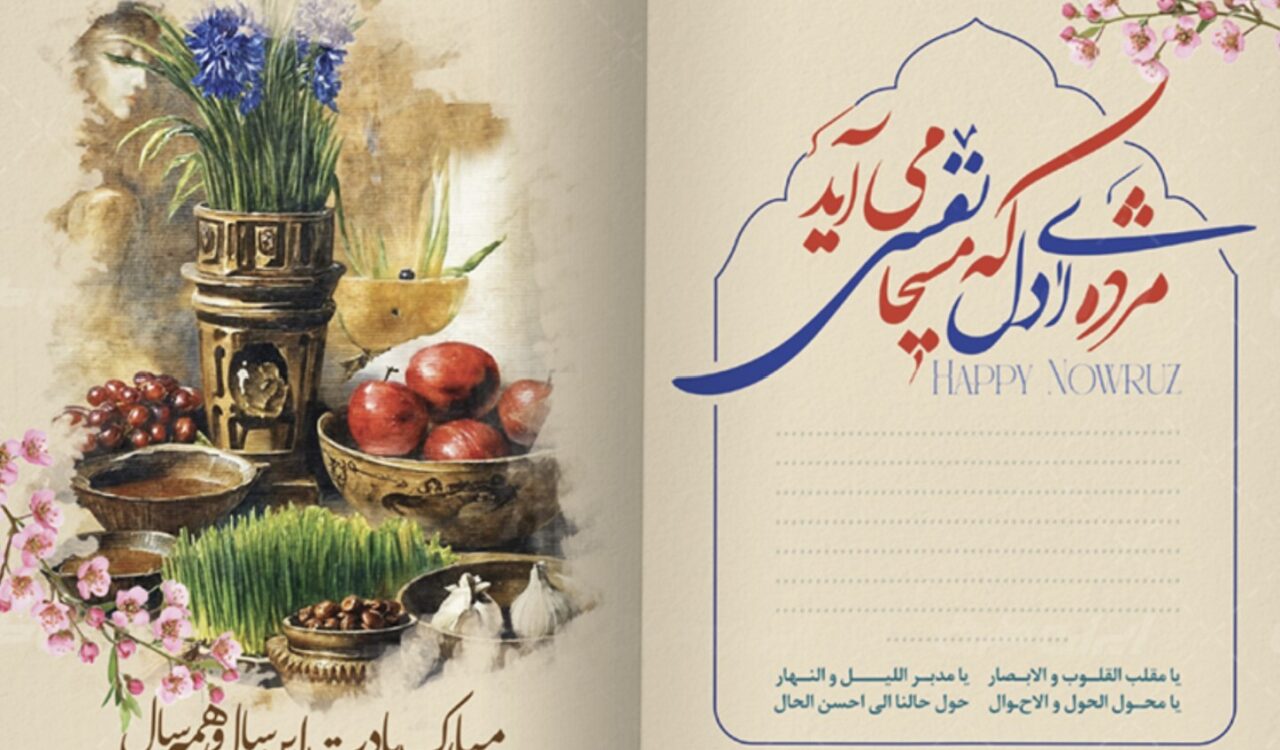 مژده ای دل که مسیحا نفسی می آید
HAPPY NOWRUZ
یا مقلب القلـوب و الابـصار یا مدبـر اللیـــل و النـهار
یا محـول الحول و الاحـوال حول حالنا الی احسن الحال
مبارک بادت این سال و همه سال